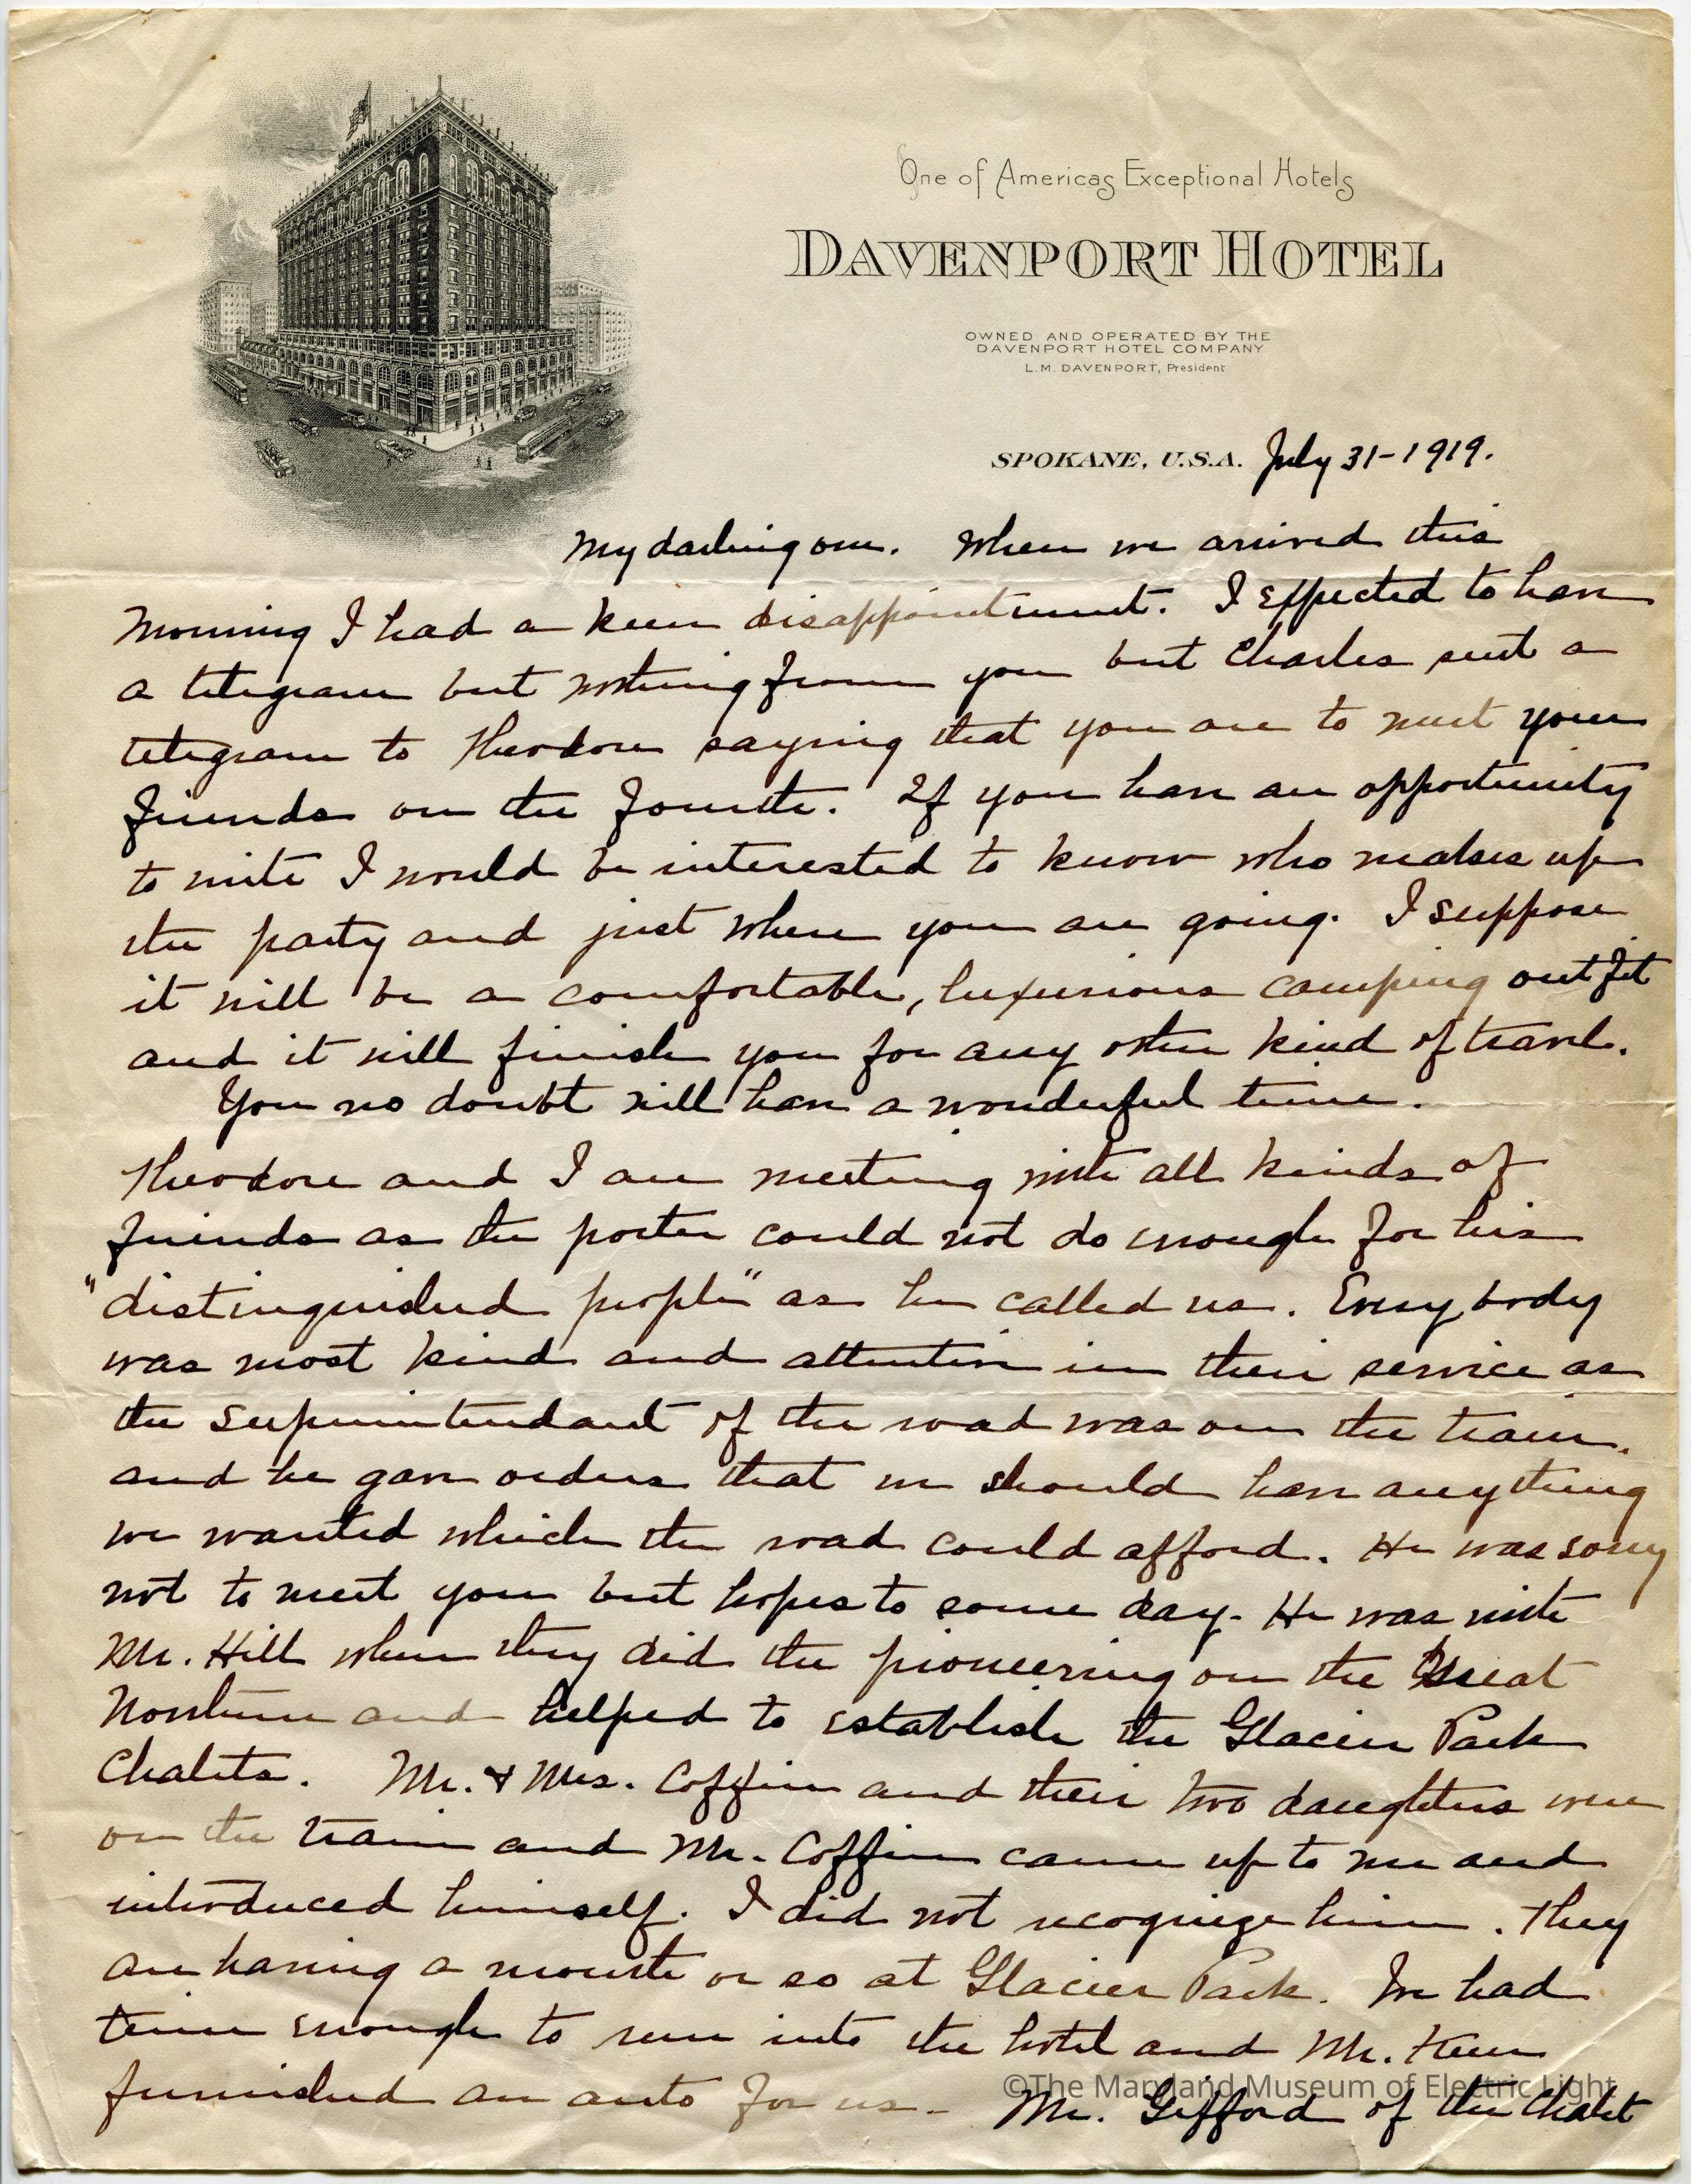 One of Americas Exceptional Hotels
DAVENPORT HOTEL
OWNED AND OPERATED BY THE
DAVENPORT HOTEL COMPANY
L.M. DAVENPORT, President
SPOKANE, U.S.A. July 31-1919.
My darling one. When we arrived this
morning I had a keen disappointment. I expected to have
a telegram but nothing from you but Charles sent a
telegram to Theodore saying that you are to meet your
friends on the fourth. If you have an opportunity
to write I would be interested to know who makes up
the party and just where you are going. I suppose
it will be a comfortable, luxurious camping outfit
and it will finish you for any other kind of travel.
You no doubt will have a wonderful time.
Theodore and I are meeting with all kinds of
friends as the porter could not do enough for his
"distinguished people" as he called us. Everybody
was most kind and attentive in their service as
the superintendant of the road was on the train.
and he gave orders that we should have anything
we wanted which the road could afford. He was sorry
not to meet you but hopes to some day. He was with
Mr. Hill when they did the pioneering on the Great
Northern and helped to establish the Glacier Park
Chalets. Mr. & Mrs. Coffin and their two daughters were
on the train and Mr. Coffin came up to me and
introduced himself. I did not recognize him. They
are having a month or so at Glacier Park. We had
time enough to run into the hotel and Mr.
furnished an auto for us- Mr. Gifford of the Chalet
©The Maryland Museum of Electric Light